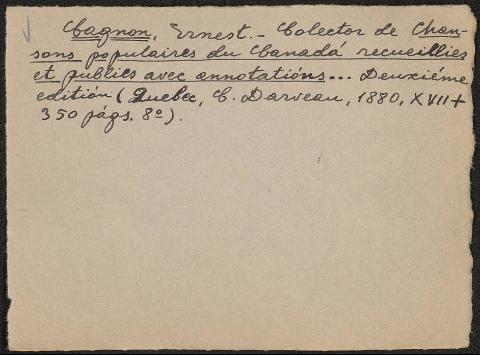 Gagnon, Ernest. - Colector de Chan-
sons populaires du Canadá recueillies
et publiés avec annotatións... Deuxiéme
edition (Quebec, C. Darveau, 1880, XVII +
350 págs. 8º).